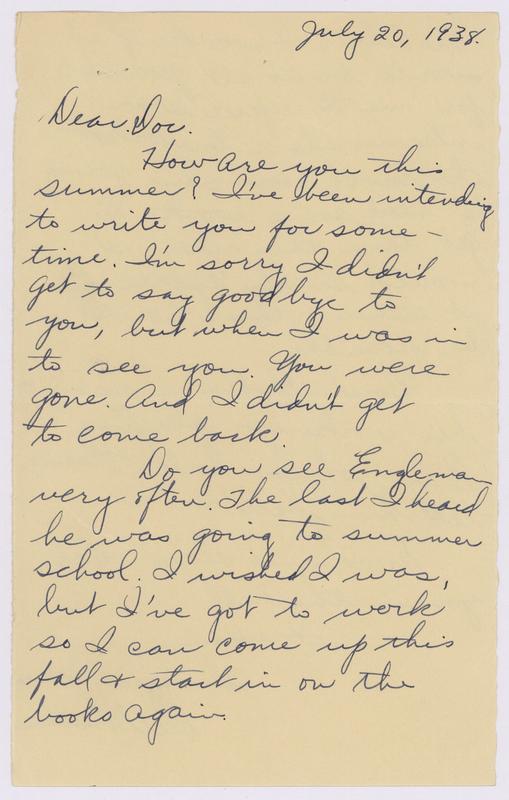 July 20, 1938.
Dear Doc.
How are you this
summer? I've been intending
to write you for some-
time. I'm sorry I didn't
get to say goodbye to
you, but when I was in
to see you. You were
gone. And I didn't get
to come back.
Do you see Engleman
very often. The last I heard
he was going to summer
school. I wished I was,
but I've got to work
so I can come up this
fall & start in on the
books again.